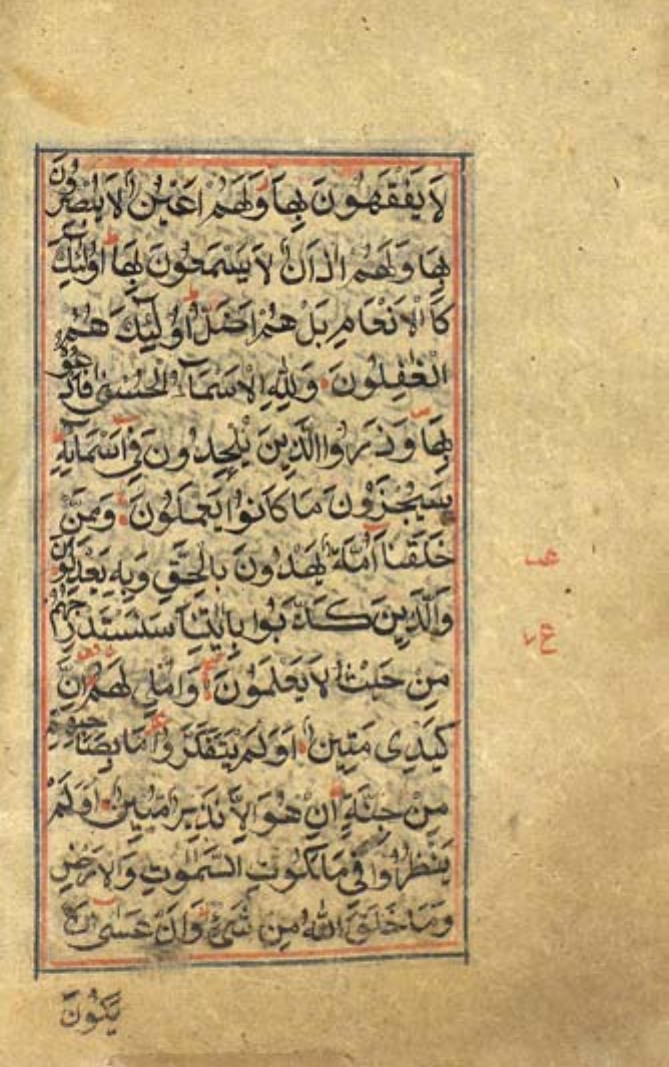 لَا يَفْقَهُونَ بِهَا وَلَهُمْ اَعْيُنٌ لَا يُبْصِرُونَ
بِهَا وَلَهُمْ اٰذَانٌ لَا يَسْمَعُونَ بِهَا اُولٰٓئِكَ
كَالْاَنْعَامِ بَلْ هُمْ اَضَلُّ اُولٰٓئِكَ هُمُ
الْغٰفِلُونَ وَلِلّٰهِ الْاَسْمَآءُ الْحُسْنٰى فَادْعُوهُ
بِهَا وَذَرُوا الَّذِينَ يُلْحِدُونَ فِىٓ اَسْمَآئِهٖ
سَيُجْزَوْنَ مَا كَانُوا يَعْمَلُونَ وَمِمَّنْ
خَلَقْنَآ اُمَّةٌ يَهْدُونَ بِالْحَقِّ وَبِهٖ يَعْدِلُونَ
وَالَّذِينَ كَذَّبُوا بِاٰيٰتِنَا سَنَسْتَدْرِجُهُمْ
مِنْ حَيْثُ لَا يَعْلَمُونَ وَاُمْلِى لَهُمْ اِنَّ
كَيْدِى مَتِينٌ اَوَلَمْ يَتَفَكَّرُوا مَا بِصَاحِبِهِمْ
مِنْ جِنَّةٍ اِنْ هُوَ اِلَّا نَذِيرٌ مُبِينٌ اَوَلَمْ
يَنْظُرُوا فِى مَلَكُوتِ السَّمٰوٰتِ وَالْاَرْضِ
وَمَا خَلَقَ اللّٰهُ مِنْ شَىْءٍ وَاَنْ عَسٰٓى اَنْ
يَكُونَ